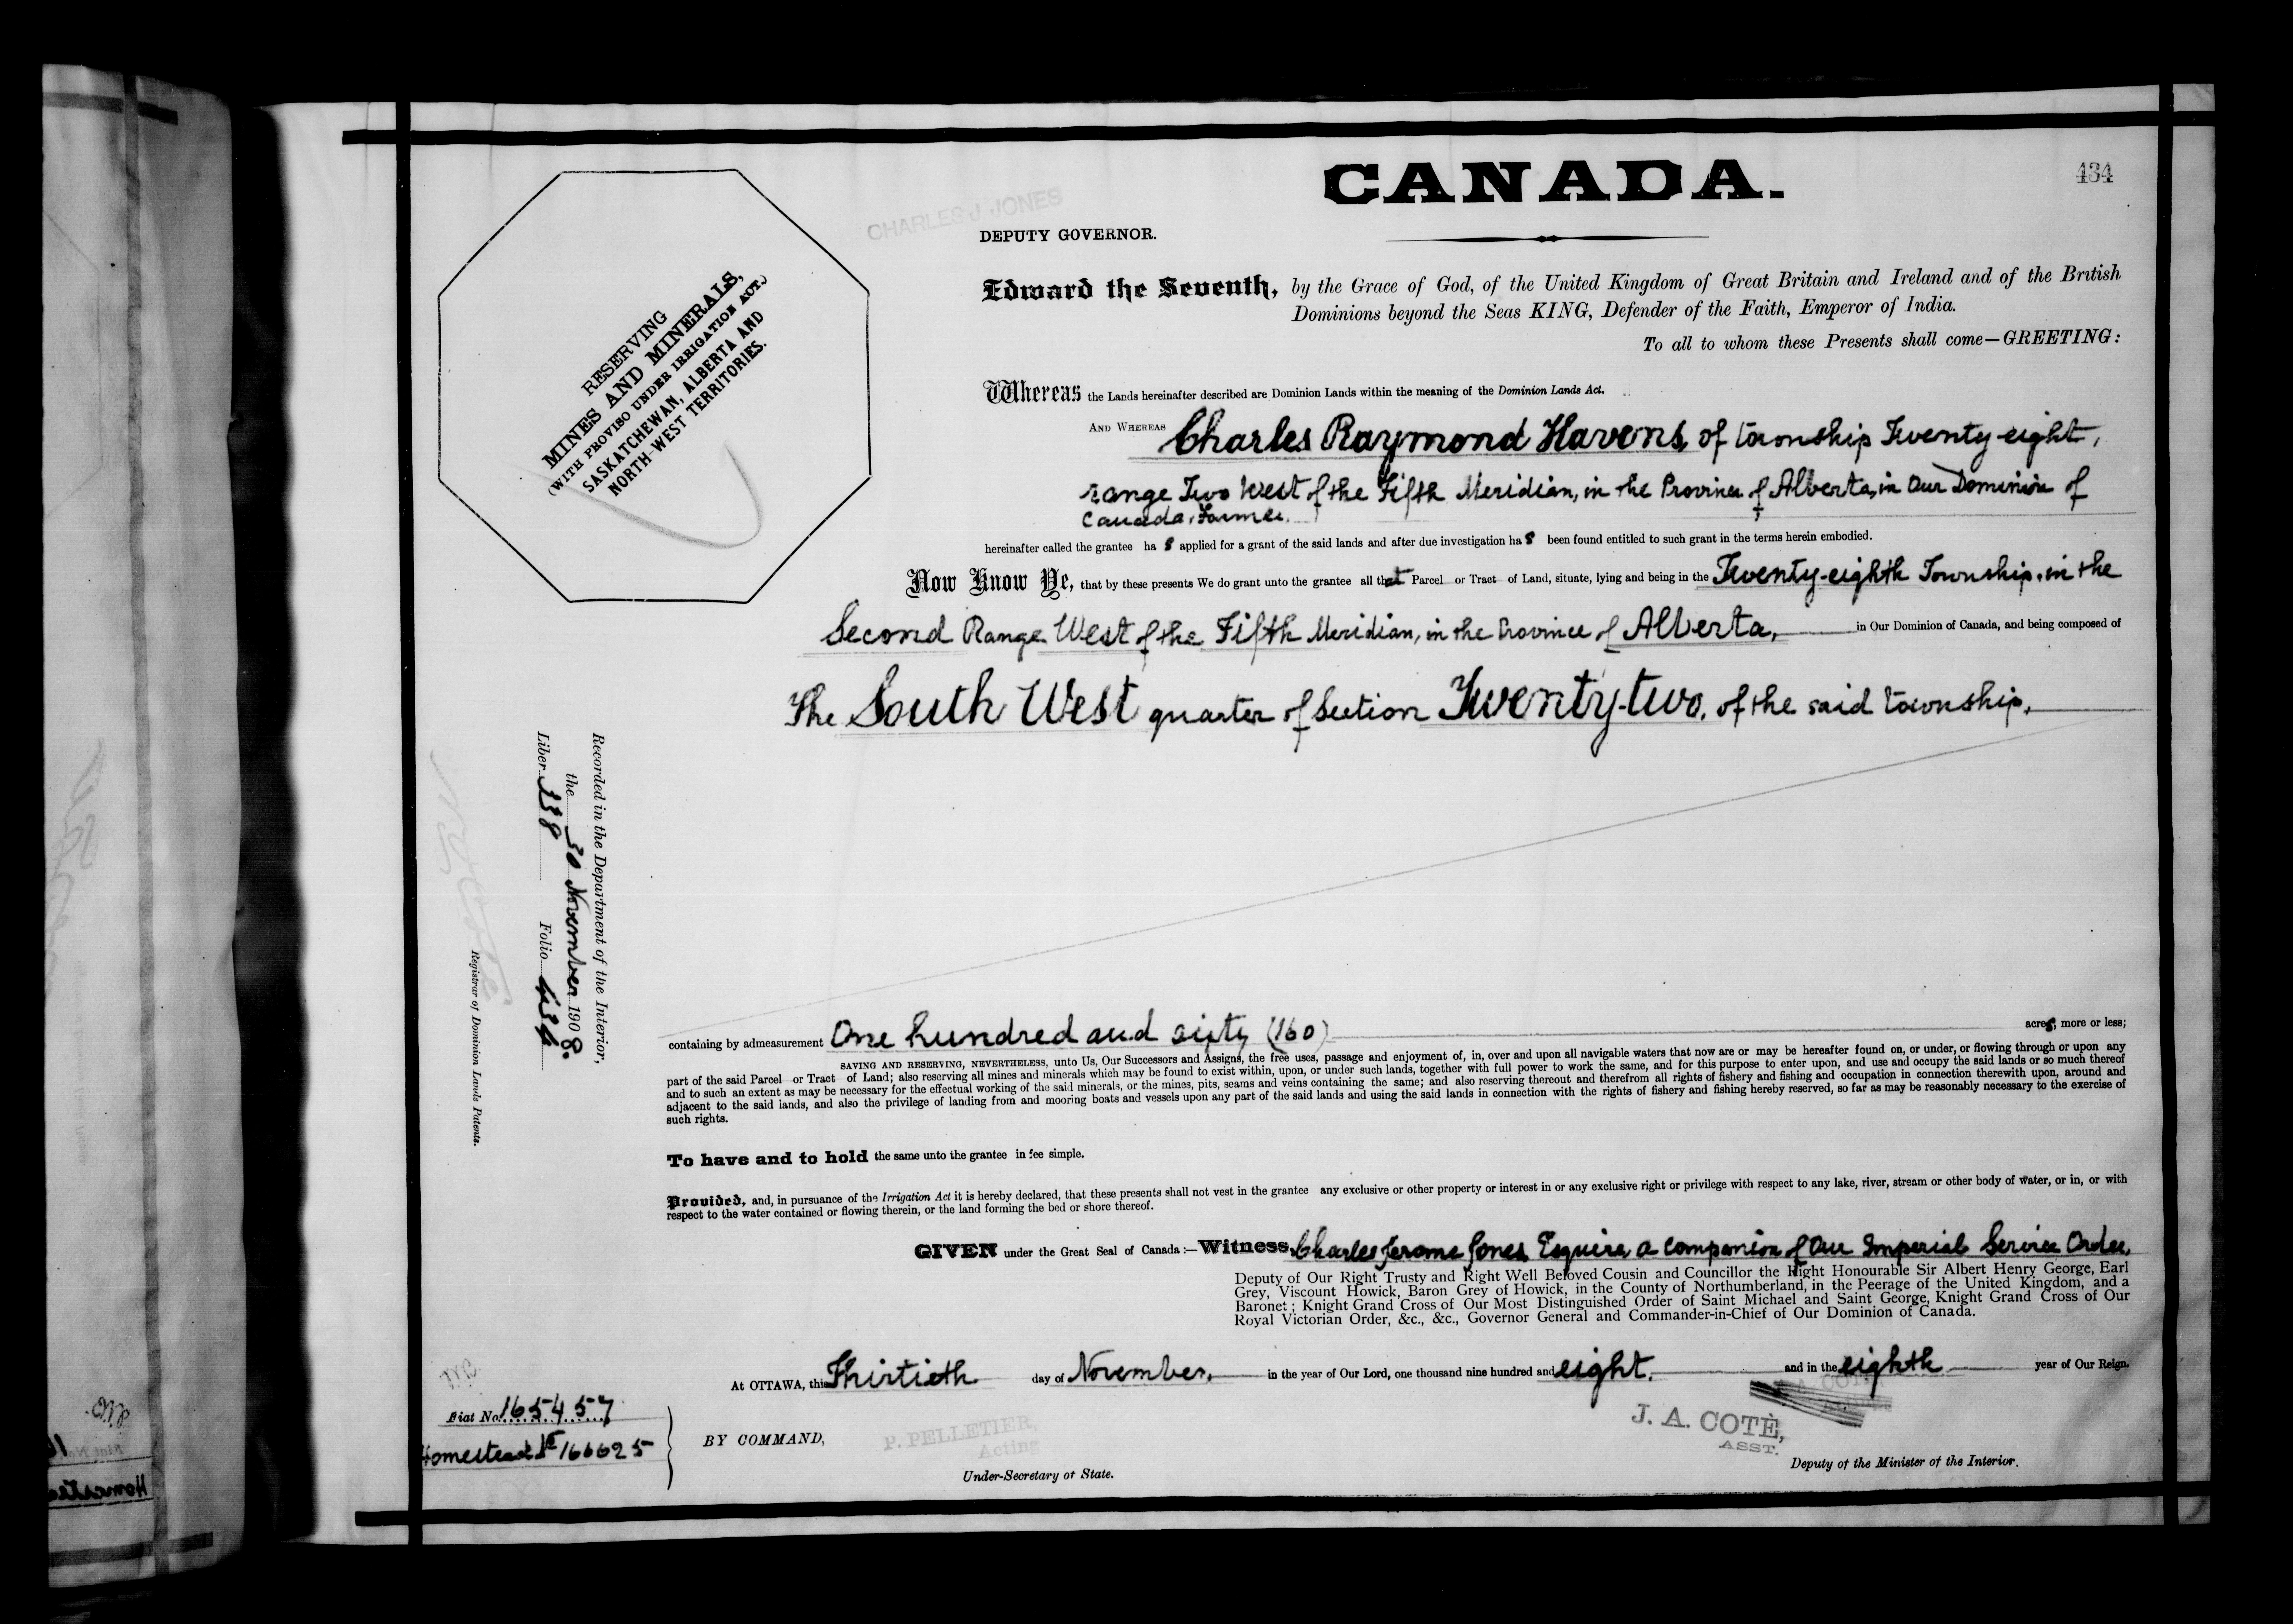 CANADA.
434
CHARLES J JONES
DEPUTY GOVERNOR.
Edward the Seventh, by the Grace of God, of the United Kingdom of Great Britain and Ireland and of the British
Dominions beyond the Seas KING, Defender of the Faith, Emperor of India.
To all to whom these Presents shall come—GREETING:
RESERVING
MINES AND MINERALS,
(WITH PROVISO UNDER IRRIGATION ACT.)
SASKATCHEWAN, ALBERTA AND
NORTH-WEST TERRITORIES.
Whereas the Lands hereinafter described are Dominion Lands within the meaning of the Dominion Lands Act.
AND WHEREAS Charles Raymond Havens, of township Twenty-eight,
range Two West of the Fifth Meridian, in the Province of Alberta, in Our Dominion of
Canada, Farmer.
hereinafter called the grantee has applied for a grant of the said lands and after due investigation has been found entitled to such grant in the terms herein embodied.
Now Know Ye, that by these presents We do grant unto the grantee all that Parcel or Tract of Land, situate, lying and being in the Twenty-eighth Township, in the
Second Range West of the Fifth Meridian, in the Province of Alberta, in Our Dominion of Canada, and being composed of
The South West quarter of Section Twenty-two, of the said township.
Recorded in the Department of the Interior,
the 30 November 1908.
Liber 338 Folio 434
Registrar of Dominion Lands Patents.
containing by admeasurement One hundred and sixty (160) acres, more or less;
SAVING AND RESERVING, NEVERTHELESS, unto Us, Our Successors and Assigns, the free uses, passage and enjoyment of, in, over and upon all navigable waters that now are or may be hereafter found on, or under, or flowing through or upon any
part of the said Parcel or Tract of Land; also reserving all mines and minerals which may be found to exist within, upon, or under such lands, together with full power to work the same, and for this purpose to enter upon, and use and occupy the said lands or so much thereof
and to such an extent as may be necessary for the effectual working of the said minerals, or the mines, pits, seams and veins containing the same; and also reserving thereout and therefrom all rights of fishery and fishing and occupation in connection therewith upon, around and
adjacent to the said lands, and also the privilege of landing from and mooring boats and vessels upon any part of the said lands and using the said lands in connection with the rights of fishery and fishing hereby reserved, so far as may be reasonably necessary to the exercise of
such rights.
To have and to hold the same unto the grantee in fee simple.
Provided, and, in pursuance of the Irrigation Act it is hereby declared, that these presents shall not vest in the grantee any exclusive or other property or interest in or any exclusive right or privilege with respect to any lake, river, stream or other body of water, or in, or with
respect to the water contained or flowing therein, or the land forming the bed or shore thereof.
GIVEN under the Great Seal of Canada:—Witness, Charles Jerome Jones, Esquire, a companion of Our Imperial Service Order,
Deputy of Our Right Trusty and Right Well Beloved Cousin and Councillor the Right Honourable Sir Albert Henry George, Earl
Grey, Viscount Howick, Baron Grey of Howick, in the County of Northumberland, in the Peerage of the United Kingdom, and a
Baronet; Knight Grand Cross of Our Most Distinguished Order of Saint Michael and Saint George, Knight Grand Cross of Our
Royal Victorian Order, &c., &c., Governor General and Commander-in-Chief of Our Dominion of Canada.
At OTTAWA, this Thirtieth day of November, in the year of Our Lord, one thousand nine hundred and eight, and in the eighth year of Our Reign.
Fiat No. 165457
Homestead No 166625
BY COMMAND,
P. PELLETIER,
Acting
Under-Secretary of State.
J. A. COTÉ,
ASST.
Deputy of the Minister of the Interior.